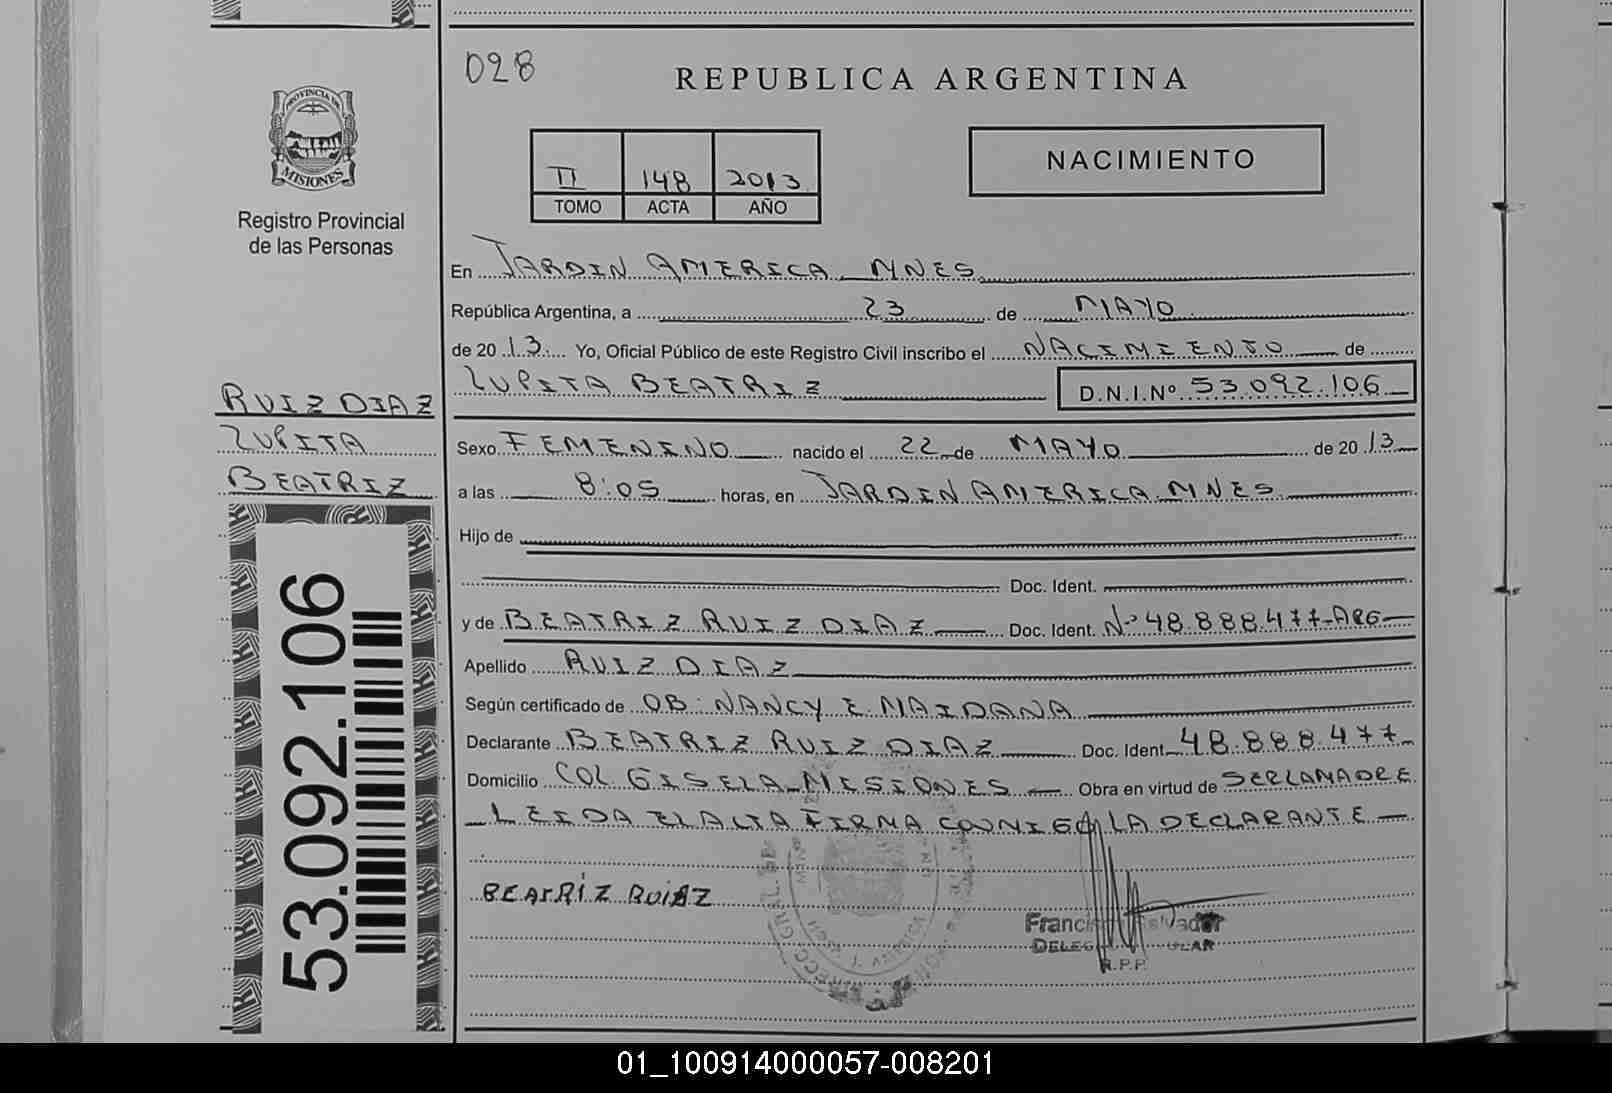 028
REPUBLICA ARGENTINA
PROVINCIA DE
MISIONES
Registro Provincial
de las Personas
II 148 2013
TOMO ACTA AÑO
NACIMIENTO
En JARDIN AMERICA MNES
República Argentina, a 23 de MAYO
de 2013 Yo, Oficial Público de este Registro Civil inscribo el NACIMIENTO de
LUPITA BEATRIZ D.N.I.Nº 53.092.106
RUIZ DIAZ
LUPITA
BEATRIZ
Sexo FEMENINO nacido el 22 de MAYO de 2013
a las 8:05 horas, en JARDIN AMERICA MNES
Hijo de
Doc. Ident.
y de BEATRIZ RUIZ DIAZ Doc. Ident. Nº 48.888.477-ARG
Apellido RUIZ DIAZ
Según certificado de OB: NANCY E. MAIDANA
Declarante BEATRIZ RUIZ DIAZ Doc. Ident 48.888.477
Domicilio COL. GISELA MISIONES Obra en virtud de SER LA MADRE
LEIDA EL ACTA FIRMA CONMIGO LA DECLARANTE
BEATRÍZ
R.P.P.
53.092.106
01_100914000057-008201